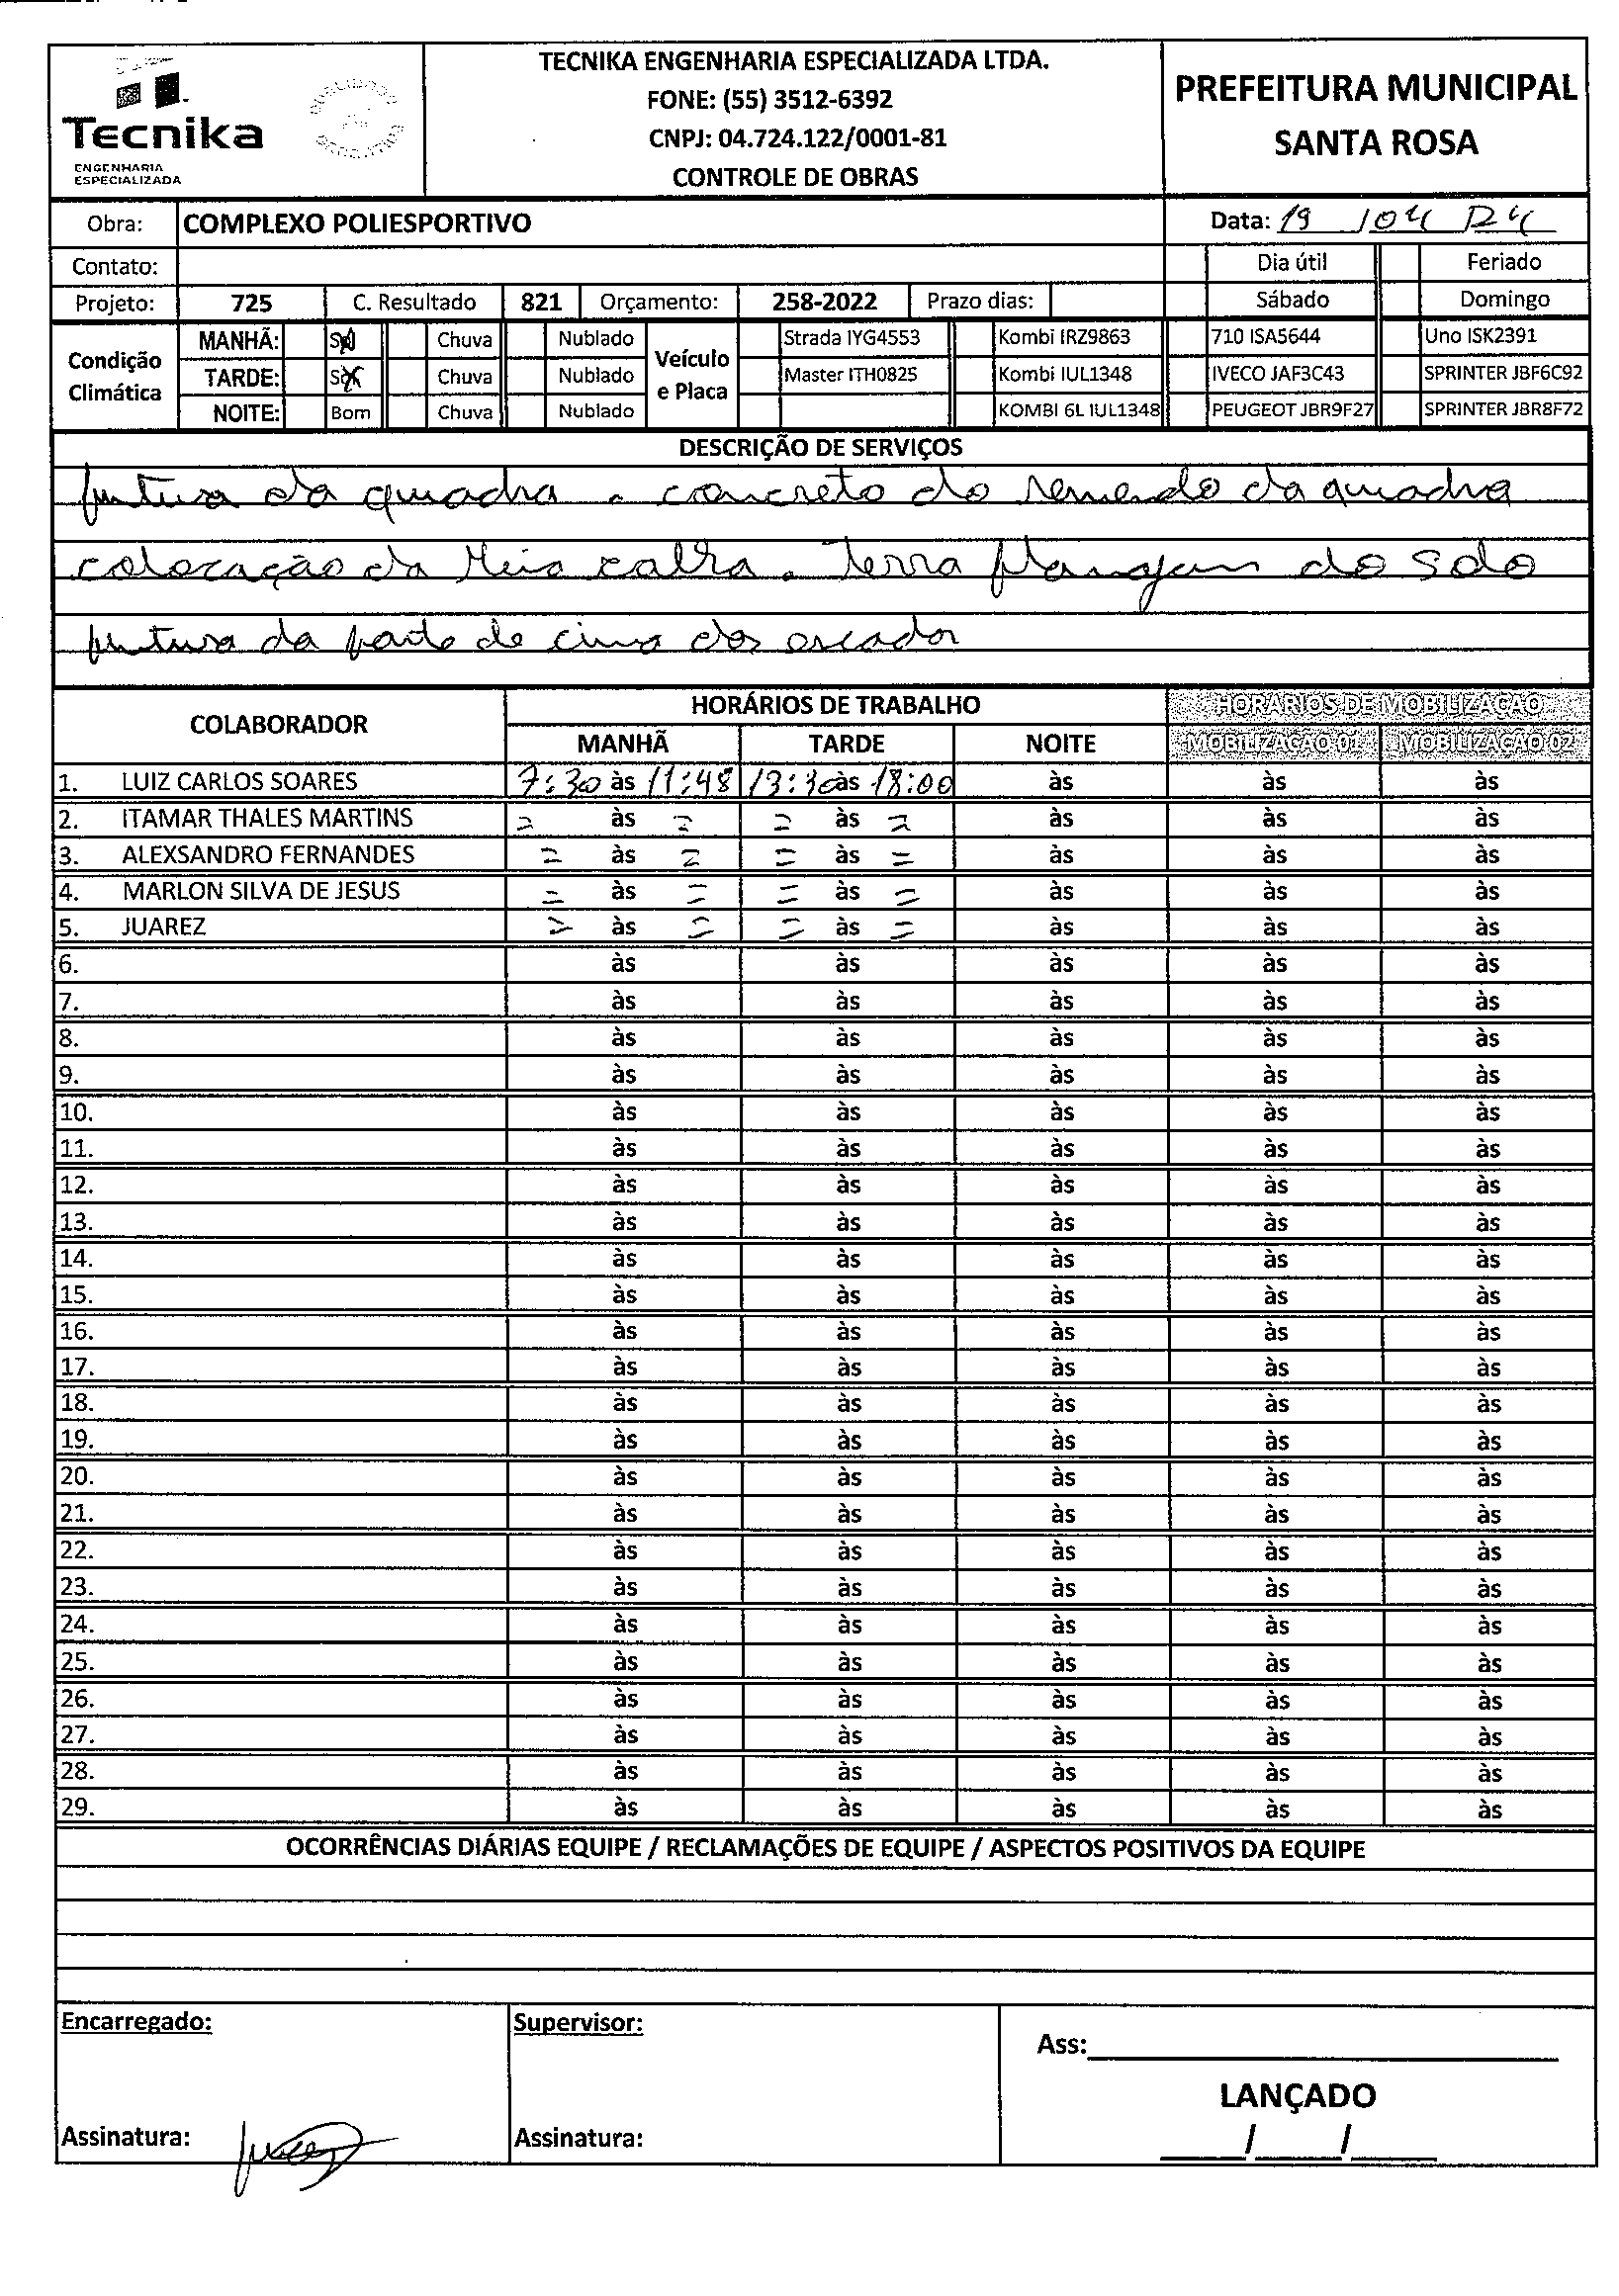 Tecnika
ENGENHARIA
ESPECIALIZADA
TECNIKA ENGENHARIA ESPECIALIZADA LTDA.
FONE: (55) 3512-6392
CNPJ: 04.724.122/0001-81
CONTROLE DE OBRAS
PREFEITURA MUNICIPAL
SANTA ROSA
Obra: COMPLEXO POLIESPORTIVO Data: 19 / 04 / 24
Contato: Dia útil Feriado
Projeto: 725 C. Resultado 821 Orçamento: 258-2022 Prazo dias: Sábado Domingo
Condição Climática
MANHÃ: Sol Chuva Nublado
TARDE: Sol Chuva Nublado
NOITE: Bom Chuva Nublado
Veículo e Placa
Strada IYG4553 Kombi IRZ9863 710 ISA5644 Uno ISK2391
Master ITH0825 Kombi IUL1348 IVECO JAF3C43 SPRINTER JBF6C92
KOMBI 6L IUL1348 PEUGEOT JBR9F27 SPRINTER JBR8F72
DESCRIÇÃO DE SERVIÇOS
pintura da quadra . concreto do remendo da quadra
colocação da Meia calha . terra planagem do solo
pintura da parte de cima dos
COLABORADOR HORÁRIOS DE TRABALHO HORÁRIOS DE MOBILIZAÇÃO
MANHÃ TARDE NOITE MOBILIZAÇÃO 01 MOBILIZAÇÃO 02
1. LUIZ CARLOS SOARES 7:30 às 11:48 13:30 às 18:00 às às às
2. ITAMAR THALES MARTINS = às = = às = às às às
3. ALEXSANDRO FERNANDES = às = = às = às às às
4. MARLON SILVA DE JESUS = às = = às = às às às
5. JUAREZ = às = = às = às às às
6. às às às às às
7. às às às às às
8. às às às às às
9. às às às às às
10. às às às às às
11. às às às às às
12. às às às às às
13. às às às às às
14. às às às às às
15. às às às às às
16. às às às às às
17. às às às às às
18. às às às às às
19. às às às às às
20. às às às às às
21. às às às às às
22. às às às às às
23. às às às às às
24. às às às às às
25. às às às às às
26. às às às às às
27. às às às às às
28. às às às às às
29. às às às às às
OCORRÊNCIAS DIÁRIAS EQUIPE / RECLAMAÇÕES DE EQUIPE / ASPECTOS POSITIVOS DA EQUIPE
Encarregado: Supervisor:
Ass:
LANÇADO
Assinatura: Assinatura: / /